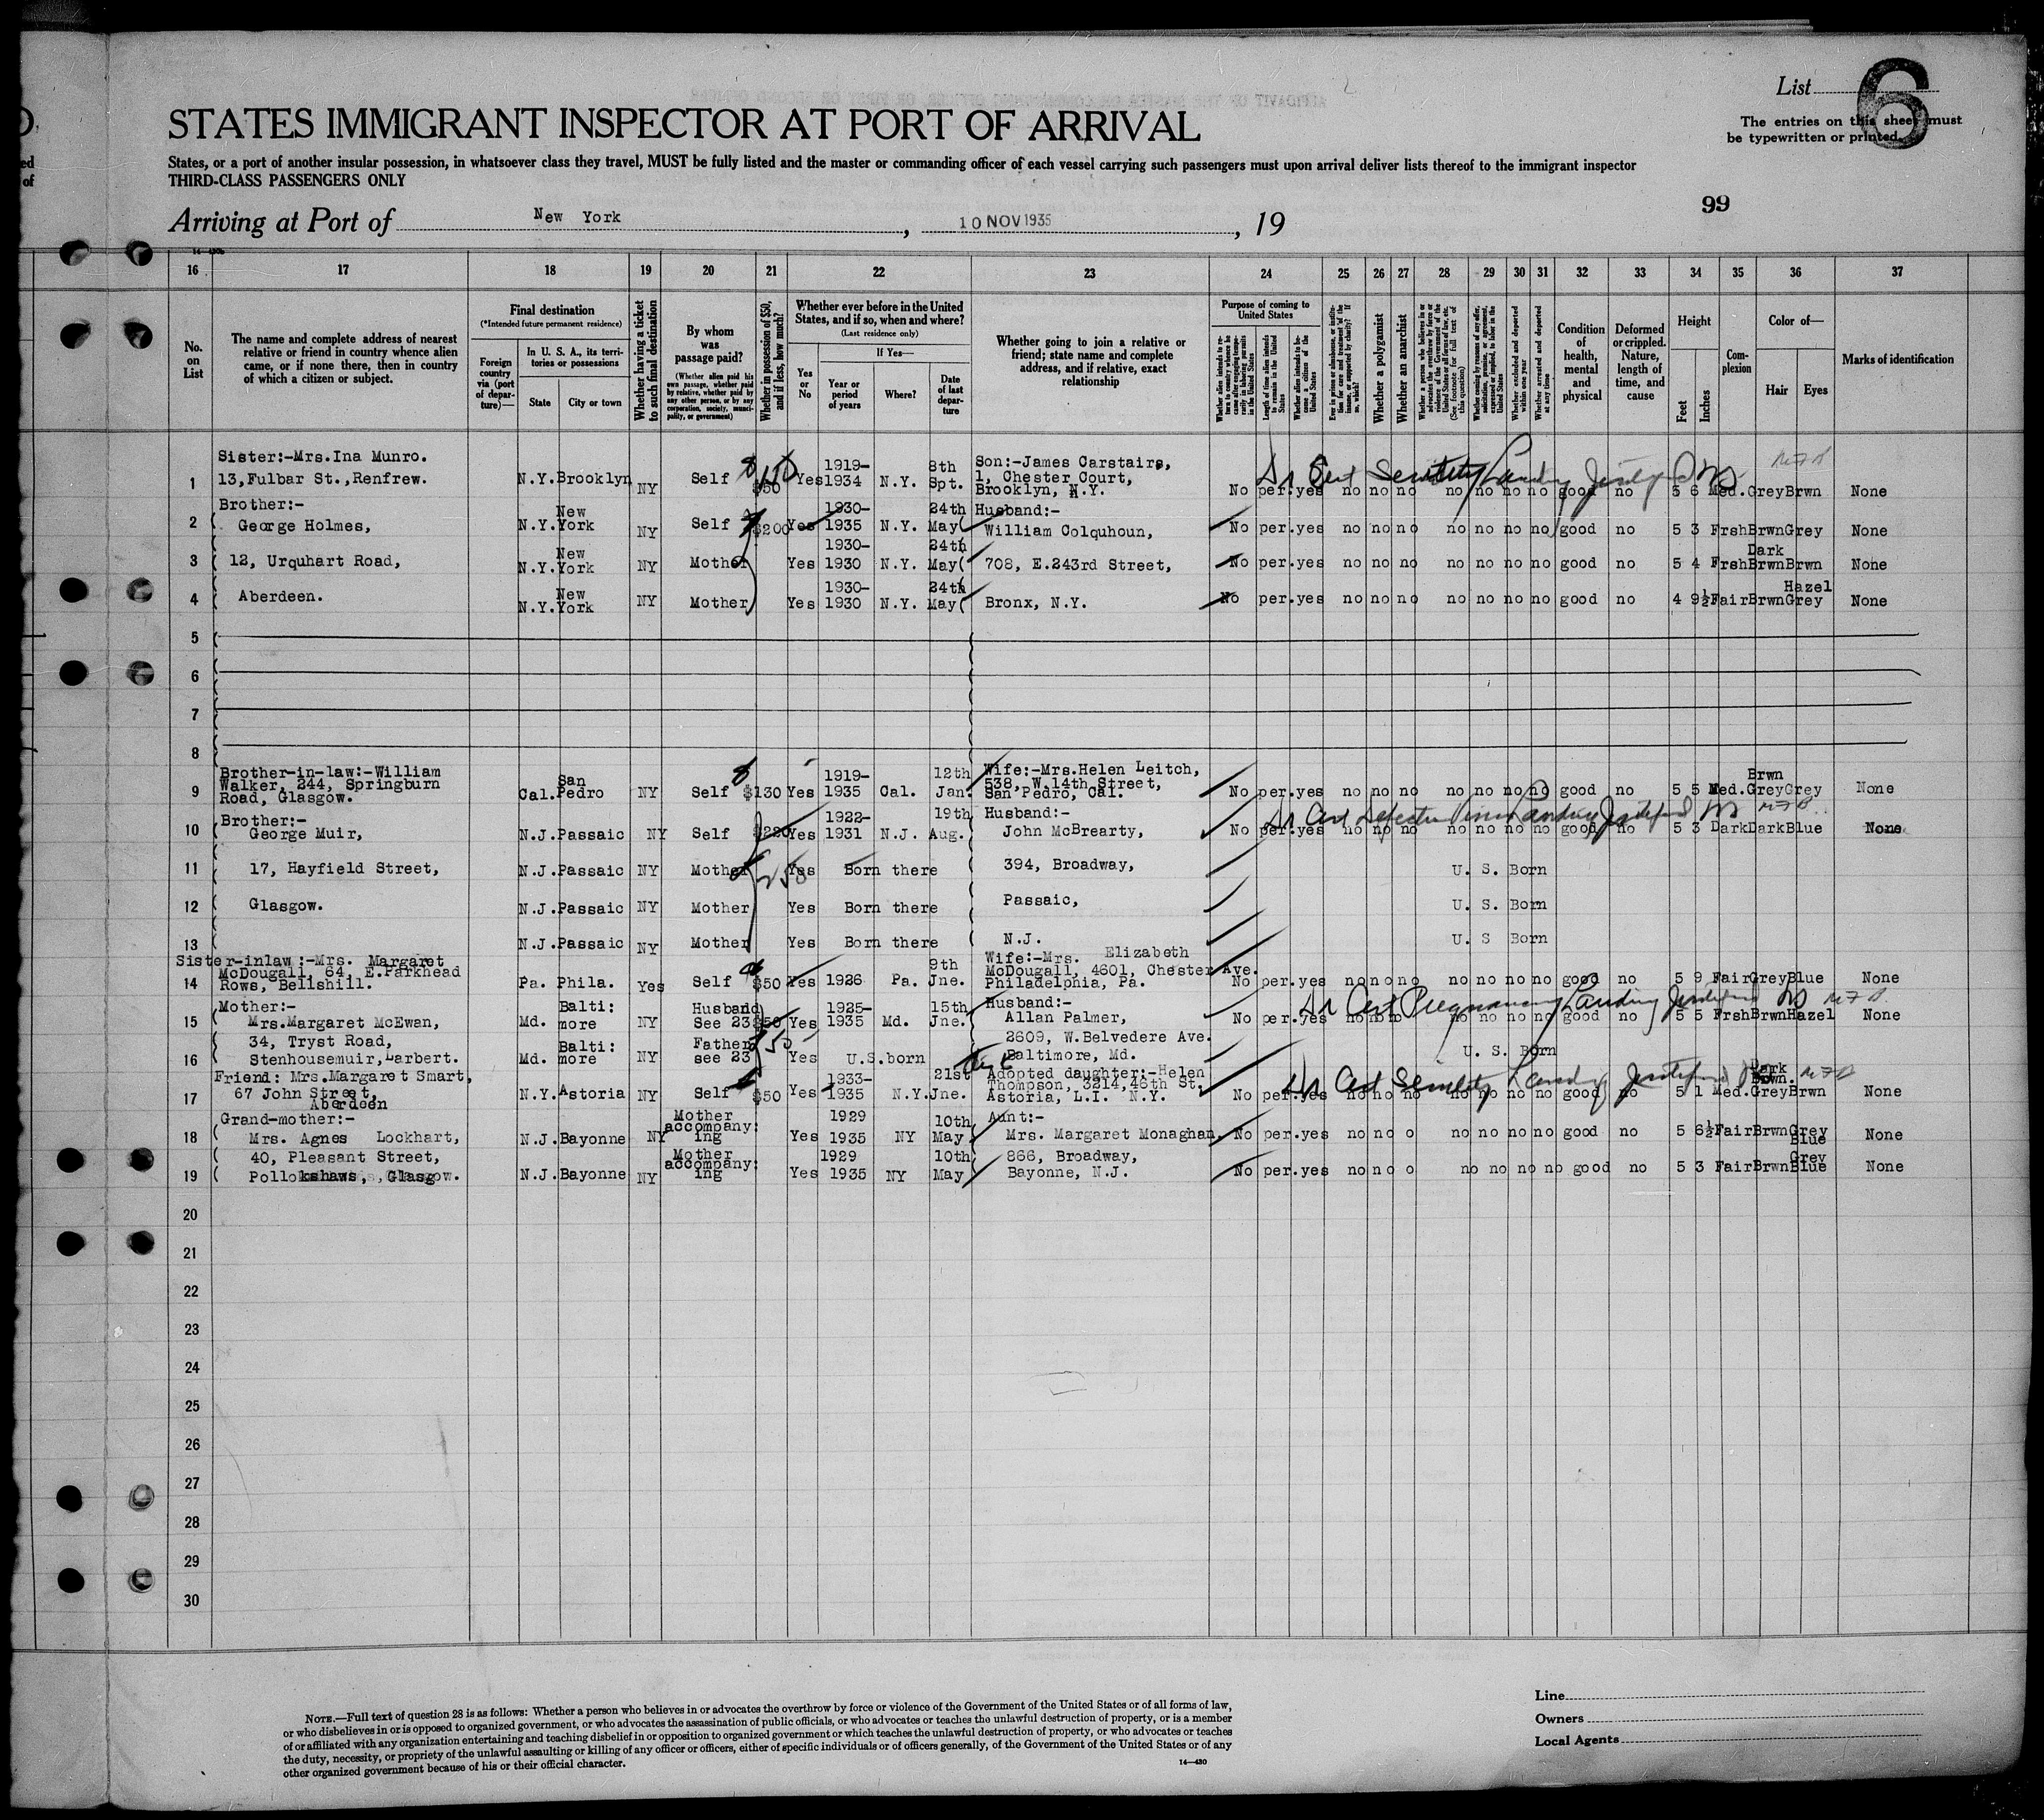 List 6
The entries on this sheet must
be typewritten or printed.
STATES IMMIGRANT INSPECTOR AT PORT OF ARRIVAL
States, or a port of another insular possession, in whatsoever class they travel, MUST be fully listed and the master or commanding officer of each vessel carrying such passengers must upon arrival deliver lists thereof to the immigrant inspector
THIRD-CLASS PASSENGERS ONLY
99
Arriving at Port of New York, 10 NOV 1935, 19
16 17 18 19 20 21 22 23 24 25 26 27 28 29 30 31 32 33 34 35 36 37
No. on List
The name and complete address of nearest relative or friend in country whence alien came, or if none there, then in country of which a citizen or subject.
Final destination
(*Intended future permanent residence)
Foreign country via (port of departure)—
In U. S. A., its territories or possessions
State
City or town
Whether having a ticket to such final destination
By whom was passage paid?
(Whether alien paid his own passage, whether paid by relative, whether paid by any other person, or by any corporation, society, municipality, or government)
Whether in possession of $50, and if less, how much?
Whether ever before in the United States, and if so, when and where?
(Last residence only)
Yes or No
If Yes—
Year or period of years
Where?
Date of last departure
Whether going to join a relative or friend; state name and complete address, and if relative, exact relationship
Purpose of coming to United States
Length of time alien intends to remain in the United States
Whether alien intends to become a citizen of the United States
Whether a polygamist
Whether an anarchist
Whether excluded and deported within one year
Whether arrested and deported at any time
Condition of health, mental and physical
Deformed or crippled. Nature, length of time, and cause
Height
Feet
Inches
Complexion
Color of—
Hair
Eyes
Marks of identification
1 Sister:-Mrs.Ina Munro. 13,Fulbar St.,Renfrew. N.Y. Brooklyn NY Self $50 150 Yes 1919-1934 N.Y. 8th Spt. Son:-James Carstairs, 1, Chester Court, Brooklyn, N.Y. No per. yes no no no no no no no good no 5 6 Med. Grey Brwn None
2 Brother:- George Holmes, N.Y. New York NY Self $200 Yes 1930-1935 N.Y. 24th May Husband:- William Colquhoun, No per. yes no no no no no no no good no 5 3 Frsh Brwn Grey None
3 12, Urquhart Road, N.Y. New York NY Mother Yes 1930-1930 N.Y. 24th May 708, E.243rd Street, No per. yes no no no no no no no good no 5 4 Frsh Dark Brwn Brwn None
4 Aberdeen. N.Y. New York NY Mother Yes 1930-1930 N.Y. 24th May Bronx, N.Y. No per. yes no no no no no no no good no 4 9½ Fair Brwn Hazel Grey None
5
6
7
8
9 Brother-in-law:-William Walker, 244, Springburn Road, Glasgow. Cal. San Pedro NY Self $130 Yes 1919-1935 Cal. 12th Jan. Wife:-Mrs.Helen Leitch, 538, W.14th Street, San Pedro, Cal. No per. yes no no no no no no no good no 5 5 Med. Brwn Grey Grey None
10 Brother:- George Muir, N.J. Passaic NY Self $220 Yes 1922-1931 N.J. 19th Aug. Husband:- John McBrearty, No per. yes no no no no no no no good no 5 3 Dark Dark Blue None
11 17, Hayfield Street, N.J. Passaic NY Mother Yes Born there 394, Broadway, U. S. Born
12 Glasgow. N.J. Passaic NY Mother Yes Born there Passaic, U. S. Born
13 N.J. Passaic NY Mother Yes Born there N.J. U. S Born
14 Sister-inlaw:-Mrs. Margaret McDougall, 64, E.Parkhead Rows, Bellshill. Pa. Phila. Yes Self $50 Yes 1926 Pa. 9th Jne. Wife:-Mrs. Elizabeth McDougall, 4601, Chester Ave. Philadelphia, Pa. No per. yes no no no no no no no good no 5 9 Fair Grey Blue None
15 Mother:- Mrs.Margaret McEwan, Md. Balti: more NY Husband See 23 $50 Yes 1925-1935 Md. 15th Jne. Husband:- Allan Palmer, No per. yes no no no no no no no good no 5 5 Frsh Brwn Hazel None
16 34, Tryst Road, Stenhousemuir, Larbert. Md. Balti: more NY Father see 23 Yes U.S.born 2609, W.Belvedere Ave. Baltimore, Md. U. S. Born
17 Friend: Mrs.Margaret Smart, 67 John Street, Aberdeen N.Y. Astoria NY Self $50 Yes 1933-1935 N.Y. 21st Jne. Adopted daughter:-Helen Thompson, 3214,46th St. Astoria, L.I. N.Y. No per. yes no no no no no no no good no 5 1 Med. Dark Brwn. Grey Brwn None
18 Grand-mother:- Mrs. Agnes Lockhart, N.J. Bayonne NY Mother accompany: ing Yes 1929 1935 NY 10th May Aunt:- Mrs. Margaret Monaghan, No per. yes no no o no no no no good no 5 6½ Fair Brwn Grey Blue None
19 40, Pleasant Street, Pollokshaws, Glasgow. N.J. Bayonne NY Mother accompany: ing Yes 1929 1935 NY 10th May 866, Broadway, Bayonne, N.J. No per. yes no no o no no no no good no 5 3 Fair Brwn Grey Blue None
20
21
22
23
24
25
26
27
28
29
30
NOTE.—Full text of question 28 is as follows: Whether a person who believes in or advocates the overthrow by force or violence of the Government of the United States or of all forms of law,
or who disbelieves in or is opposed to organized government, or who advocates the assassination of public officials, or who advocates or teaches the unlawful destruction of property, or is a member
of or affiliated with any organization entertaining and teaching disbelief in or opposition to organized government or which teaches the unlawful destruction of property, or who advocates or teaches
the duty, necessity, or propriety of the unlawful assaulting or killing of any officer or officers, either of specific individuals or of officers generally, of the Government of the United States or of any
other organized government because of his or their official character.
14—430
Line
Owners
Local Agents